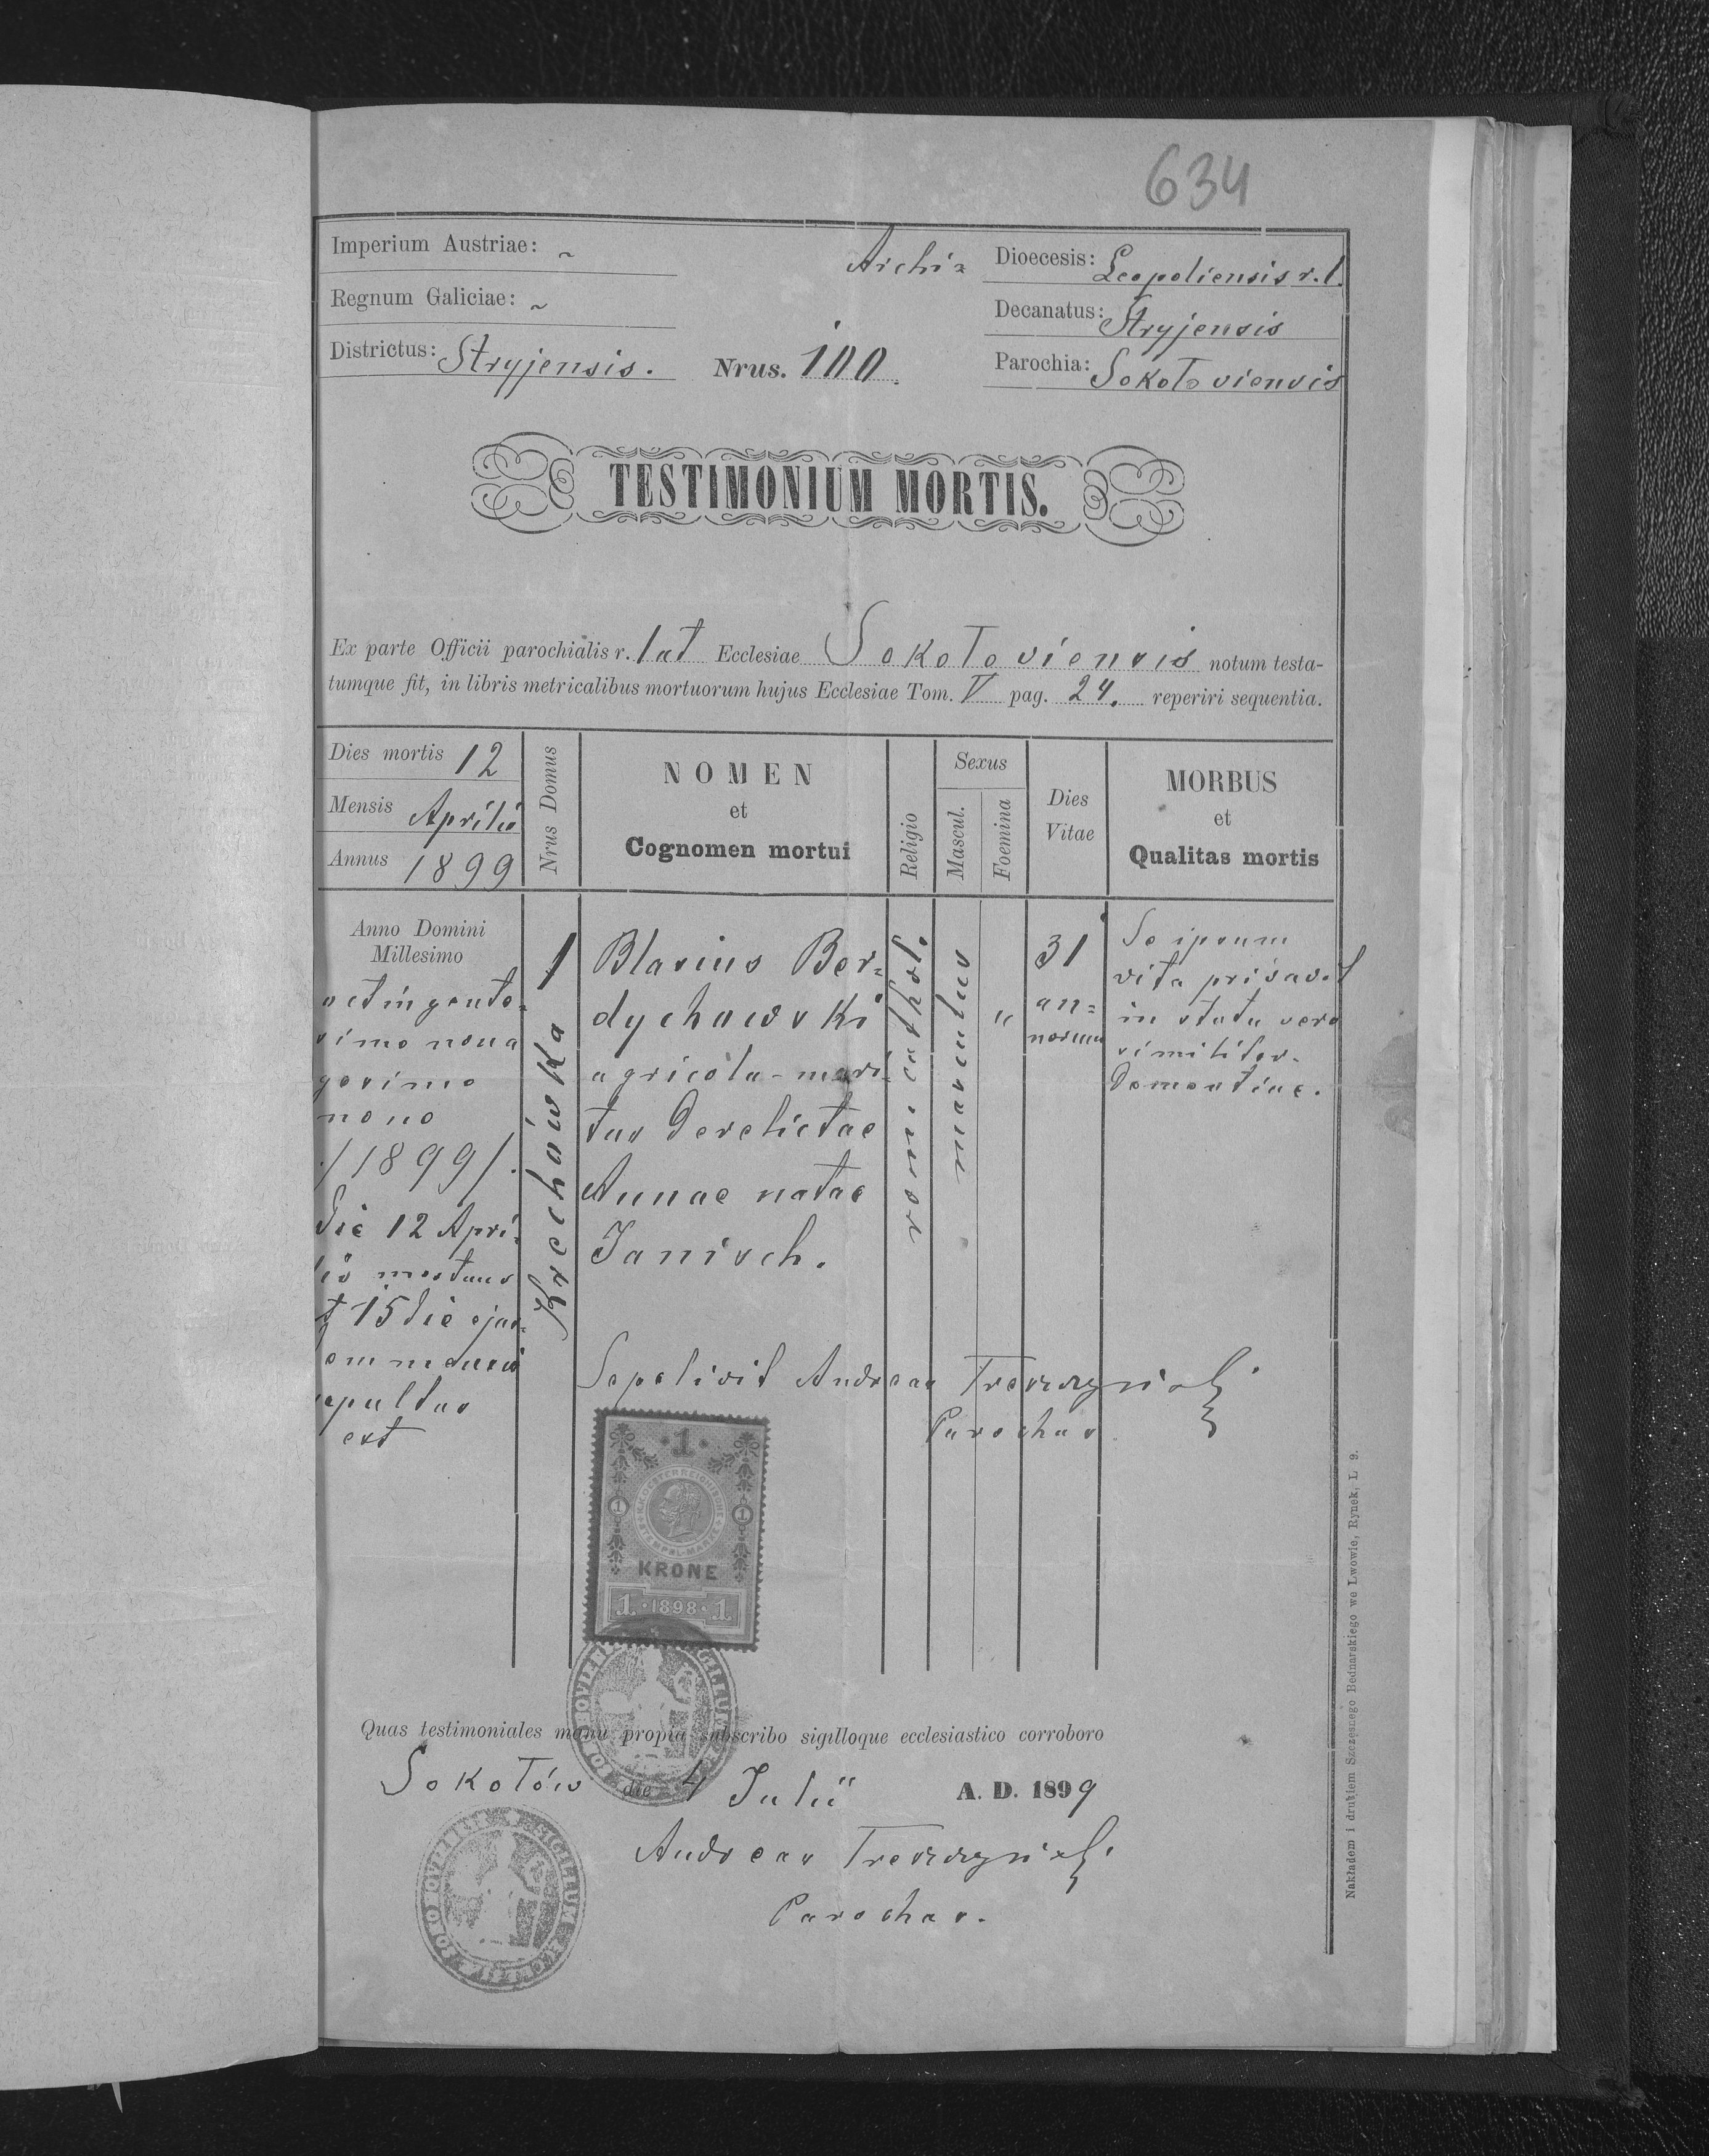 634
Imperium Austriae: ~
Regnum Galiciae: ~
Districtus: Stryjensis.
Nrus. 100.
Archi= Dioecesis: Leopoliensis r. l.
Decanatus: Stryjensis
Parochia: Sokołoviensis
TESTIMONIUM MORTIS.
Ex parte Officii parochialis r. lat Ecclesiae Sokołoviensis notum testa-
tumque fit, in libris metricalibus mortuorum hujus Ecclesiae Tom. V pag. 24. reperiri sequentia.
Dies mortis 12
Mensis Aprilis
Annus 1899
Nrus Domus
NOMEN
et
Cognomen mortui
Religio
Sexus
Mascul.
Foemina
Dies
Vitae
MORBUS
et
Qualitas mortis
Anno Domini
Millesimo
octingente-
simo nona
gesimo
nono
/1899/.
die 12 Apri-
lis mortuus
et 15 die ejus-
dem mensis
sepultus
est
1
Krechówka
Blasius Ber=
dychowski
agricola - mari-
tus derelictae
Annae natae
Janisch.
rom. cathol.
masculus
"
31
an=
norum
Se ipsum
vita privavit
in statu vero
similiter
Dementiae.
Sepelivit Andreas
Parochus
1
KRONE
1 · 1898 · 1
Quas testimoniales manu propia subscribo sigilloque ecclesiastico corroboro
Sokołów die 4 Julii A. D. 1899
Andreas
Parochus.
SIGILLUM
Nakładem i drukiem Szczęsnego Bednarskiego we Lwowie, Rynek, L 9.